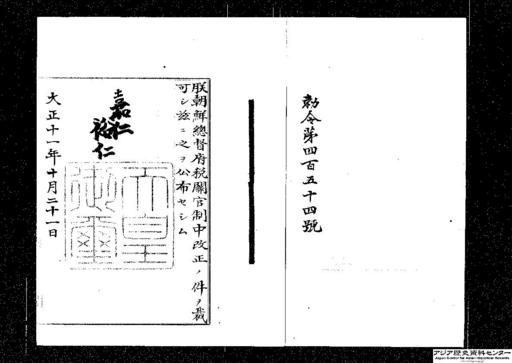 勅令第四百五十四號
朕朝鮮總督府稅關官制中改正ノ件ヲ裁
可シ茲ニ之ヲ公布セシム
嘉仁
裕仁
天皇
御璽
大正十一年十月二十一日
アジア歴史資料センター
Japan Center for Asian Historical Records